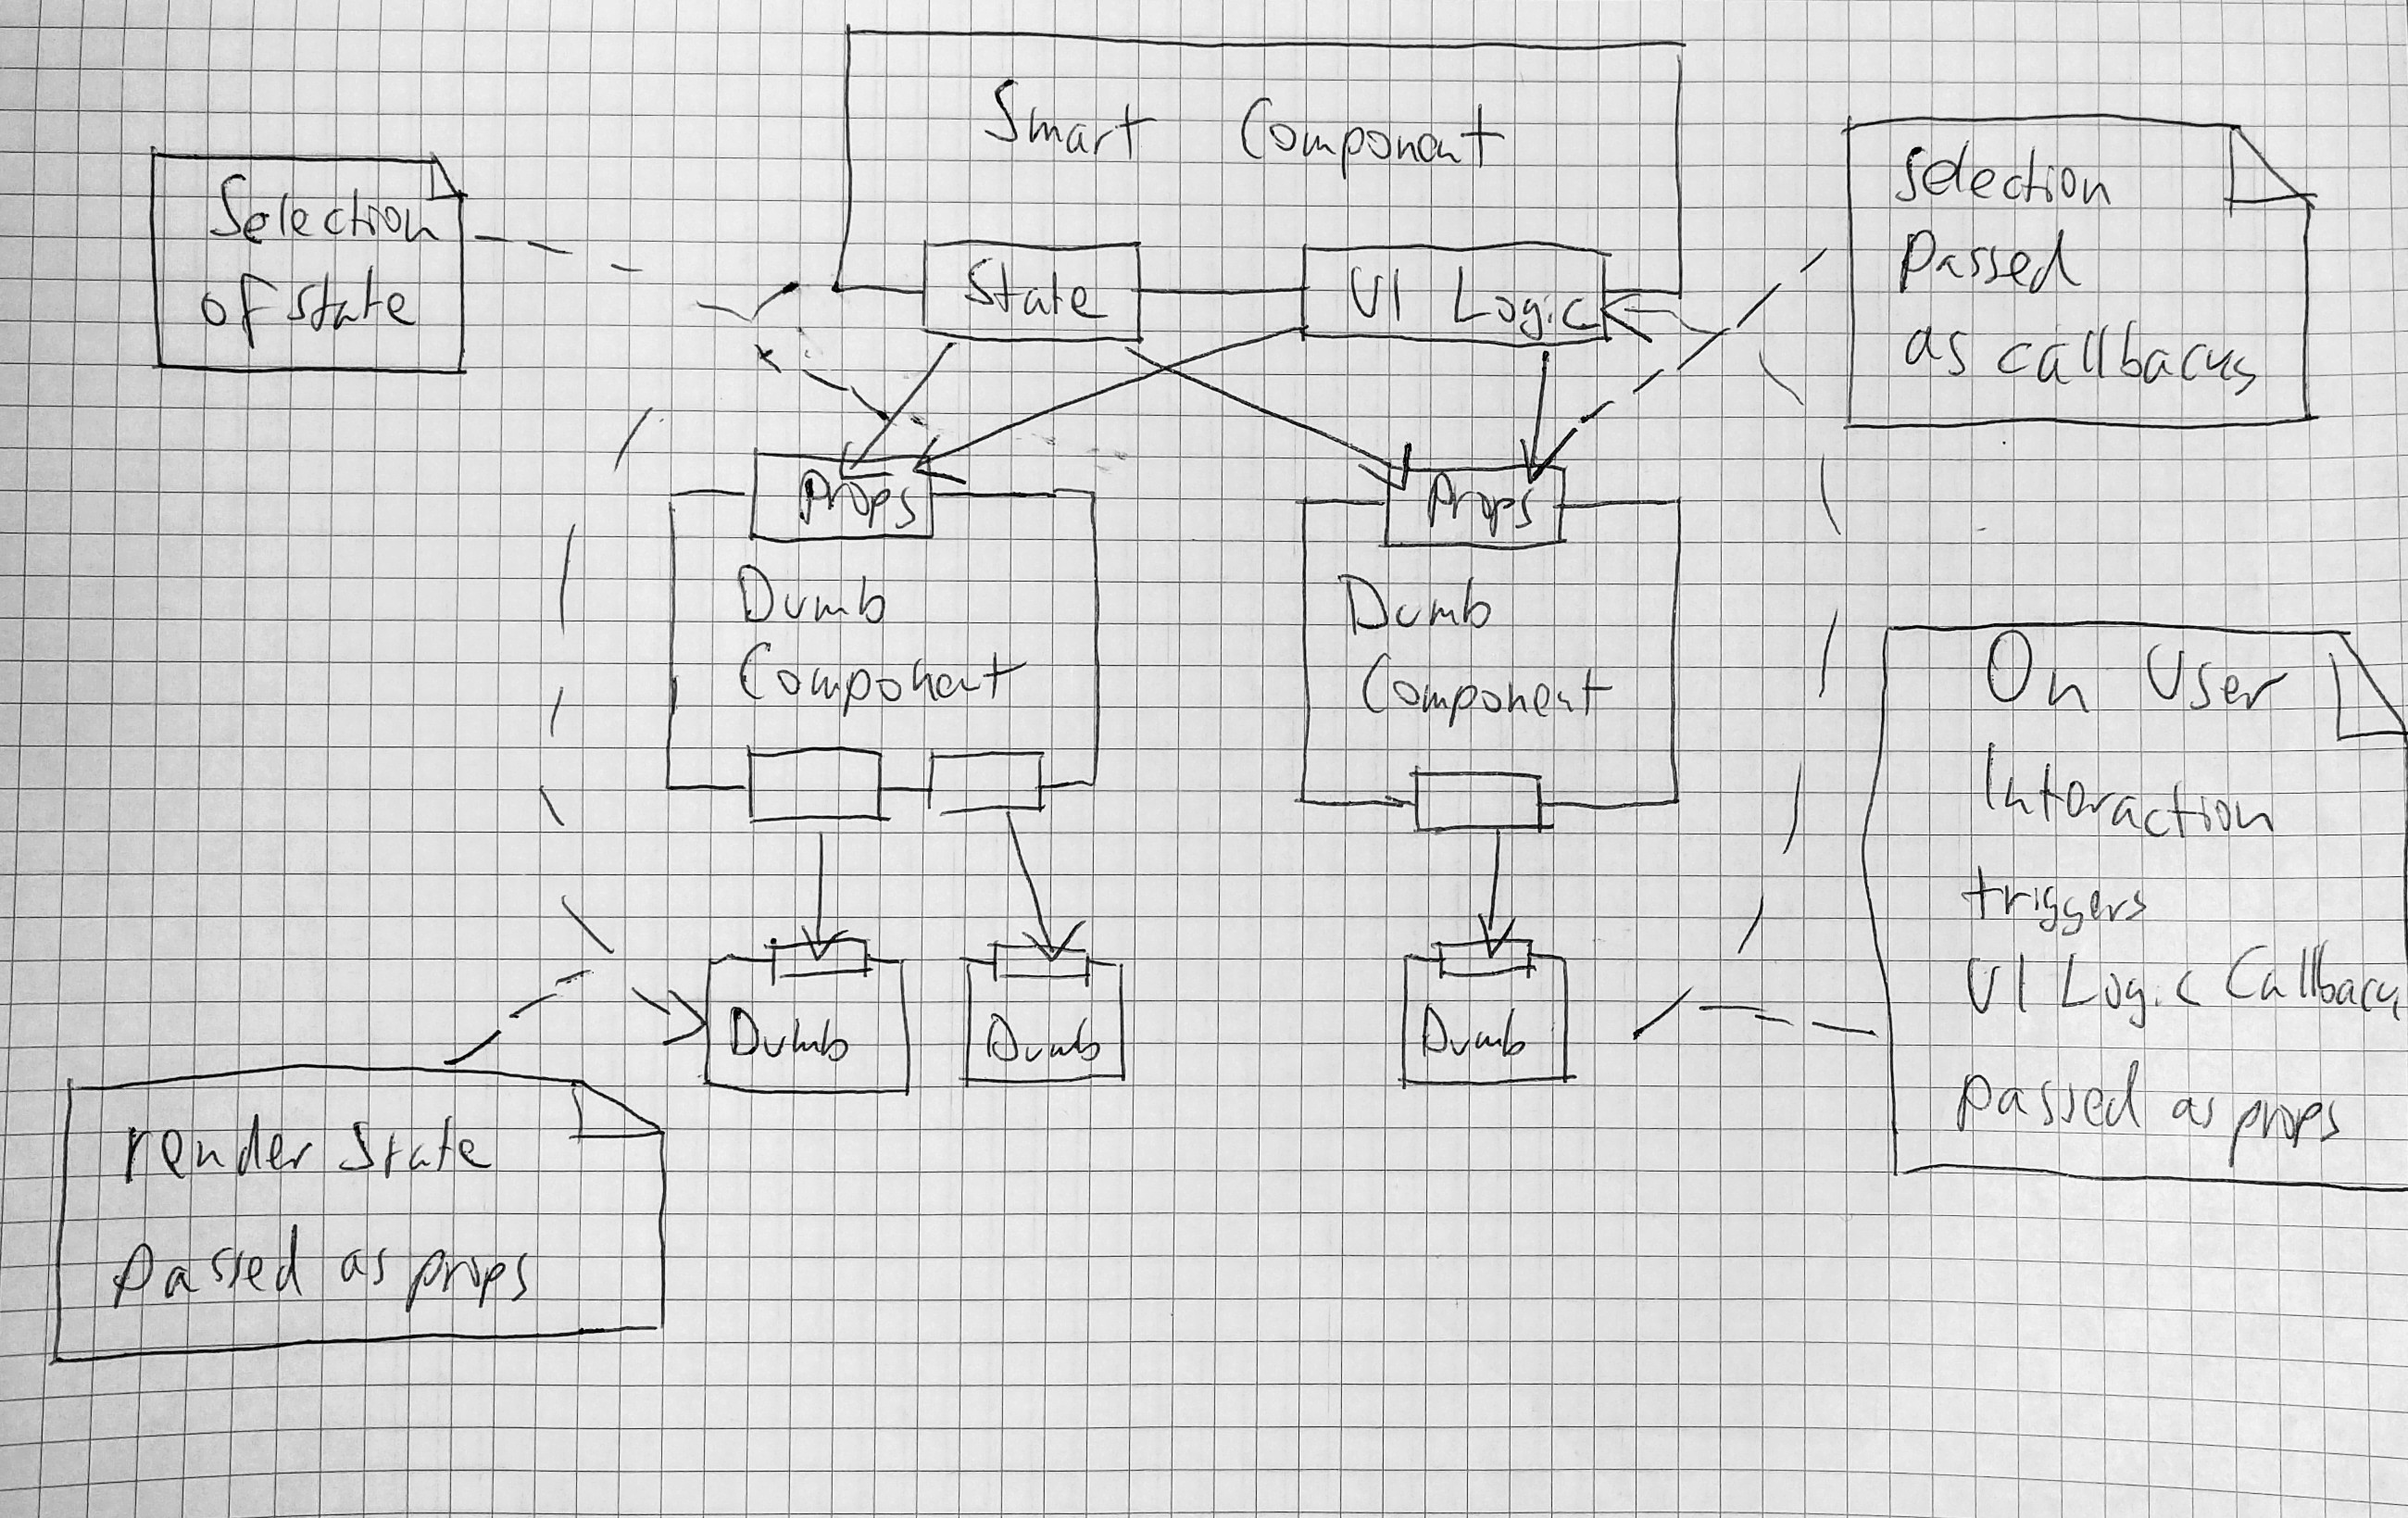 Smart Component
Selection
of state
State
UI Logic
Selection
Passed
as callbacks
Props
Props
Dumb
Component
Dumb
Component
On User
Interaction
triggers
UI Logic Callback
passed as props
Dumb
Dumb
Dumb
render state
passed as props